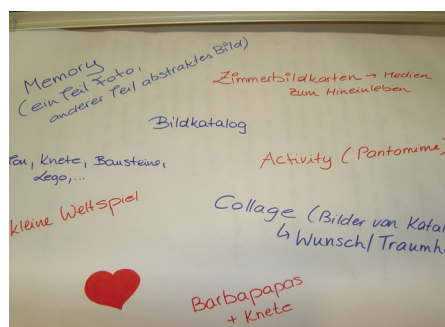 Memory
(ein Teil Foto,
anderer Teil abstraktes Bild)
Zimmerbildkarten → Medien
zum Hineinleben
Bildkatalog
Knete, Bausteine,
Lego,...
Activity (Pantomime)
kleine Weltspiel
Collage (Bilder von
↳ Wunsch/
Barbapapas
+ Knete